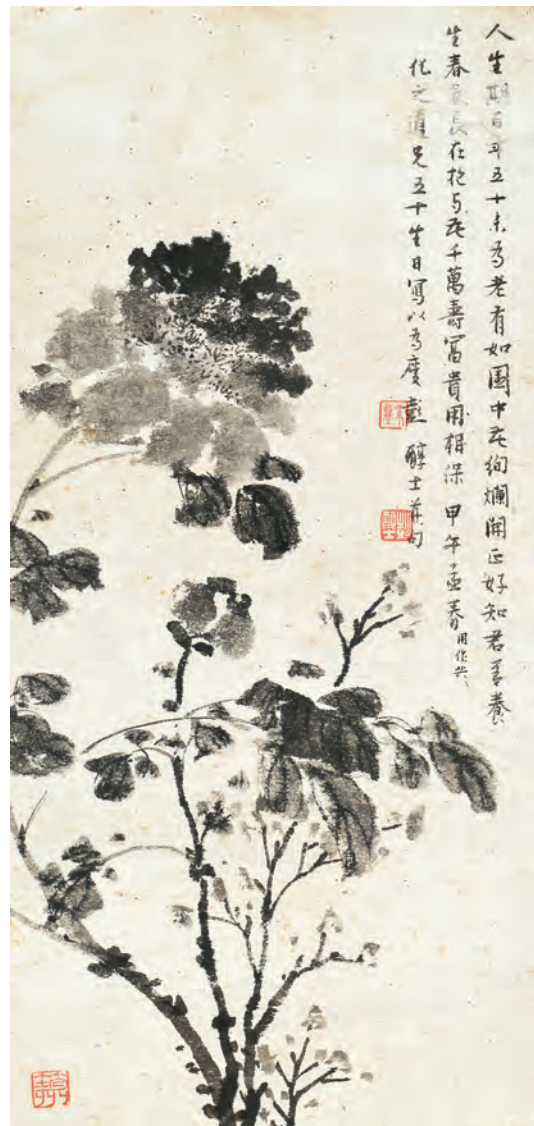 人生期百年五十未為老有如園中花絢爛開正好知君善養
生春氣長在抱与花千萬壽富貴用相保 甲午孟春 用作共
化之道兄五十生日寫以為慶 彭醇士并句